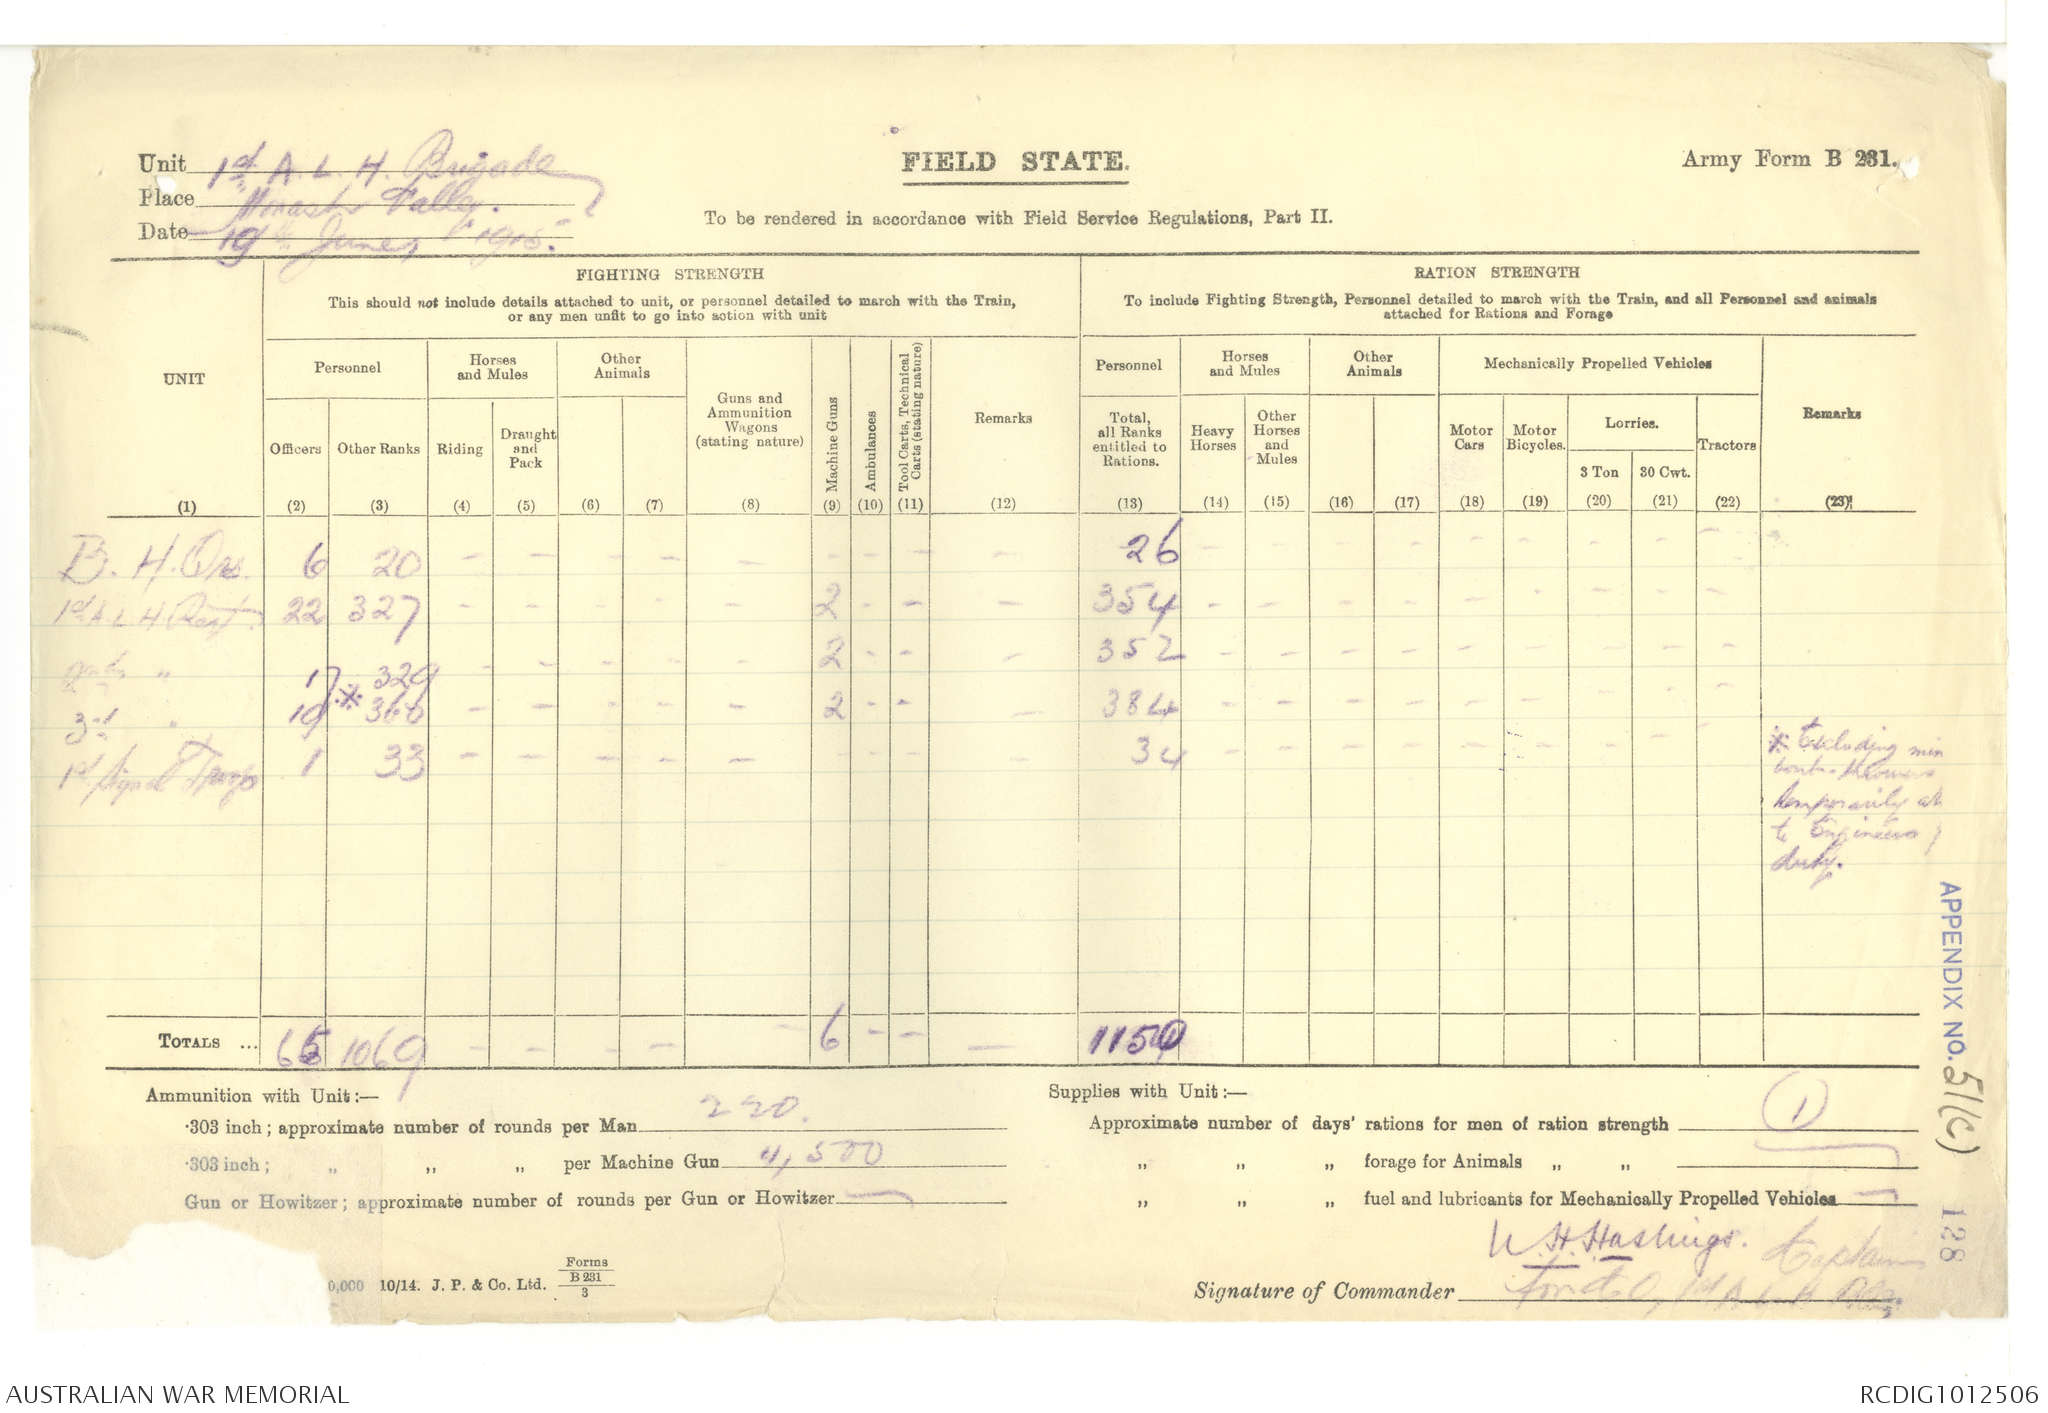 Unit 1st A. L. H. Brigade
Place Monash Valley.
Date 19th June, 1915.
FIELD STATE.
To be rendered in accordance with Field Service Regulations, Part II.
Army Form B 231.
FIGHTING STRENGTH
This should not include details attached to unit, or personnel detailed to march with the Train,
or any men unfit to go into action with unit
RATION STRENGTH
To include Fighting Strength, Personnel detailed to march with the Train, and all Personnel and animals
attached for Rations and Forage
UNIT (1)
Personnel
Officers (2)
Other Ranks (3)
Horses and Mules
Riding (4)
Draught and Pack (5)
Other Animals
(6) (7)
Guns and Ammunition Wagons (stating nature) (8)
Machine Guns (9)
Ambulances (10)
Tool Carts, Technical Carts (stating nature) (11)
Remarks (12)
Personnel
Total, all Ranks entitled to Rations. (13)
Horses and Mules
Heavy Horses (14)
Other Horses and Mules (15)
Other Animals
(16) (17)
Mechanically Propelled Vehicles
Motor Cars (18)
Motor Bicycles. (19)
Lorries.
3 Ton (20)
30 Cwt. (21)
Tractors (22)
Remarks (23)
B. H. Qrs. 6 20 - - - - - - - - - 26 - - - - - - - - -
1st A. L. H. Regt. 22 327 - - - - - 2 - - - 354 - - - - - - - - -
2nd " 17 329 - - - - - 2 - - - 352 - - - - - - - - -
3rd " 19 * 360 - - - - - 2 - - - 384 - - - - - - - - -
1st Signal Troop 1 33 - - - - - - - - - 34 - - - - - - - - -
* Excluding
bomb-throwers
temporarily
to Engineers
duty.
TOTALS ... 65 1069 - - - - - 6 - - - 1150
Ammunition with Unit:—
·303 inch; approximate number of rounds per Man 220.
·303 inch; „ „ „ per Machine Gun 4,500
Gun or Howitzer; approximate number of rounds per Gun or Howitzer —
Supplies with Unit:—
Approximate number of days' rations for men of ration strength 1
„ „ „ forage for Animals „ „ —
„ „ „ fuel and lubricants for Mechanically Propelled Vehicles —
0,000 10/14. J. P. & Co. Ltd. Forms B 231 3
W. H. Hastings. Captain
Signature of Commander for Lt Col, 1st A L H Bde.
APPENDIX NO. 51(c)
128
AUSTRALIAN WAR MEMORIAL
RCDIG1012506